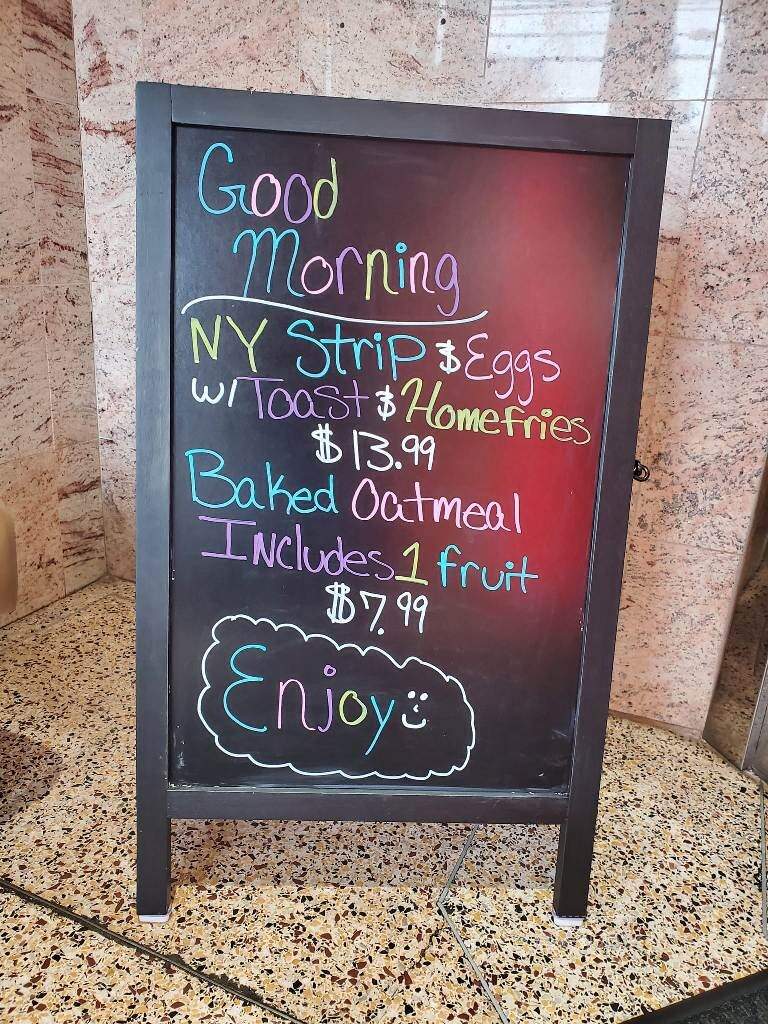 Good
Morning
NY Strip $ Eggs
w/ Toast $ Homefries
$13.99
Baked Oatmeal
Includes 1 fruit
$7.99
Enjoy